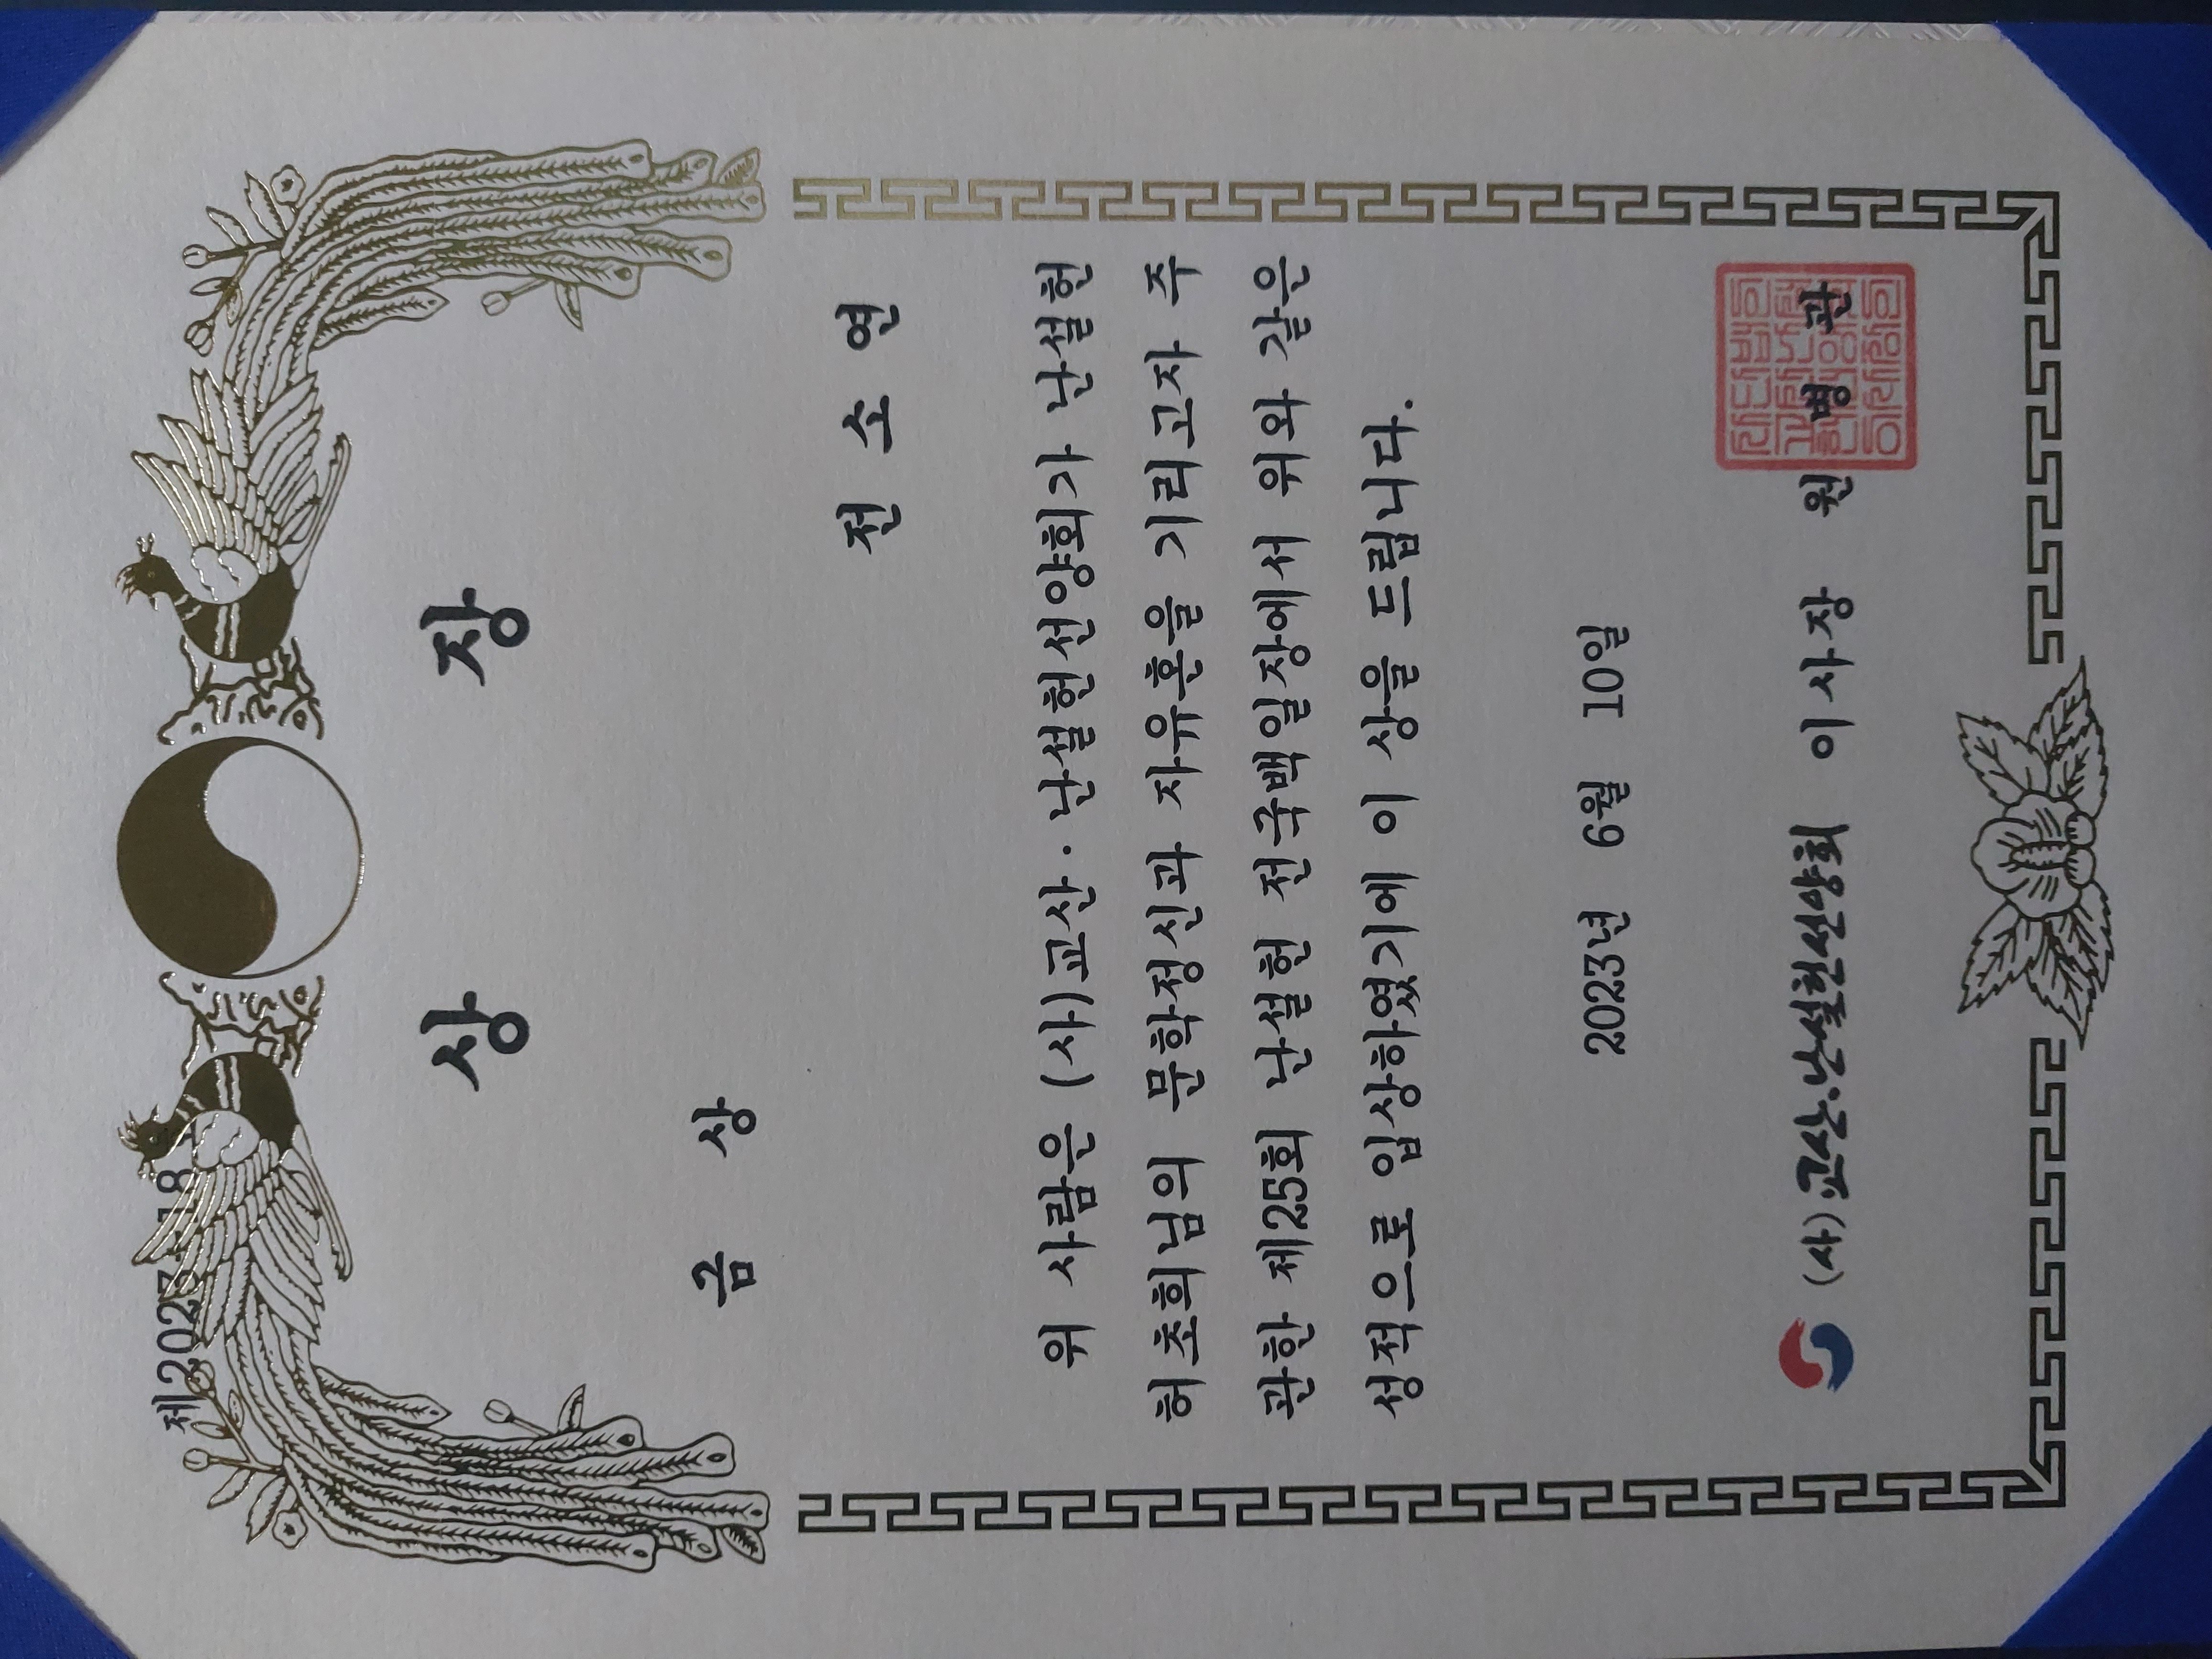 제2023-18호
상 장
금 상
전 소 연
위 사람은 (사)교산·난설헌선양회가 난설헌
허초희님의 문학정신과 자유혼을 기리고자 주
관한 제25회 난설헌 전국백일장에서 위와 같은
성적으로 입상하였기에 이 상을 드립니다.
2023년 6월 10일
(사)교산·난설헌선양회 이사장 원 병 관